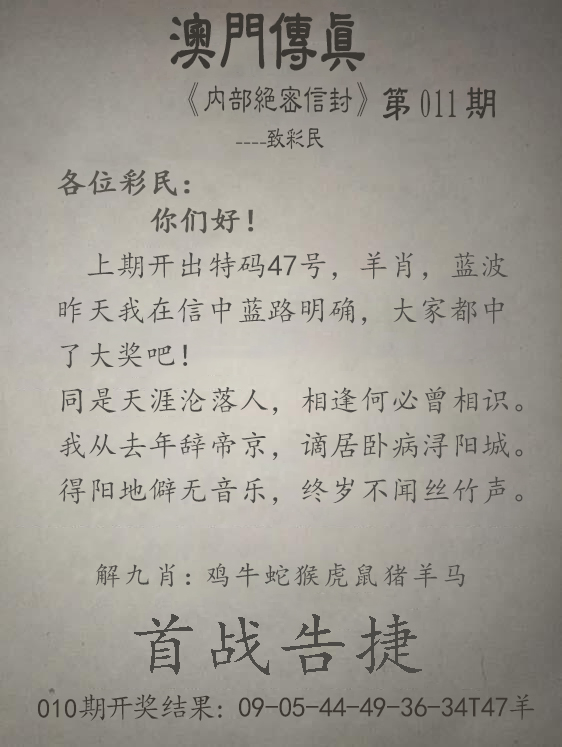 澳門傳眞
《内部絕密信封》第011期
----致彩民
各位彩民：
你们好！
上期开出特码47号，羊肖，蓝波
昨天我在信中蓝路明确，大家都中
了大奖吧！
同是天涯沦落人，相逢何必曾相识。
我从去年辞帝京，谪居卧病浔阳城。
得阳地僻无音乐，终岁不闻丝竹声。
解九肖：鸡牛蛇猴虎鼠猪羊马
首战告捷
010期开奖结果：09-05-44-49-36-34T47羊